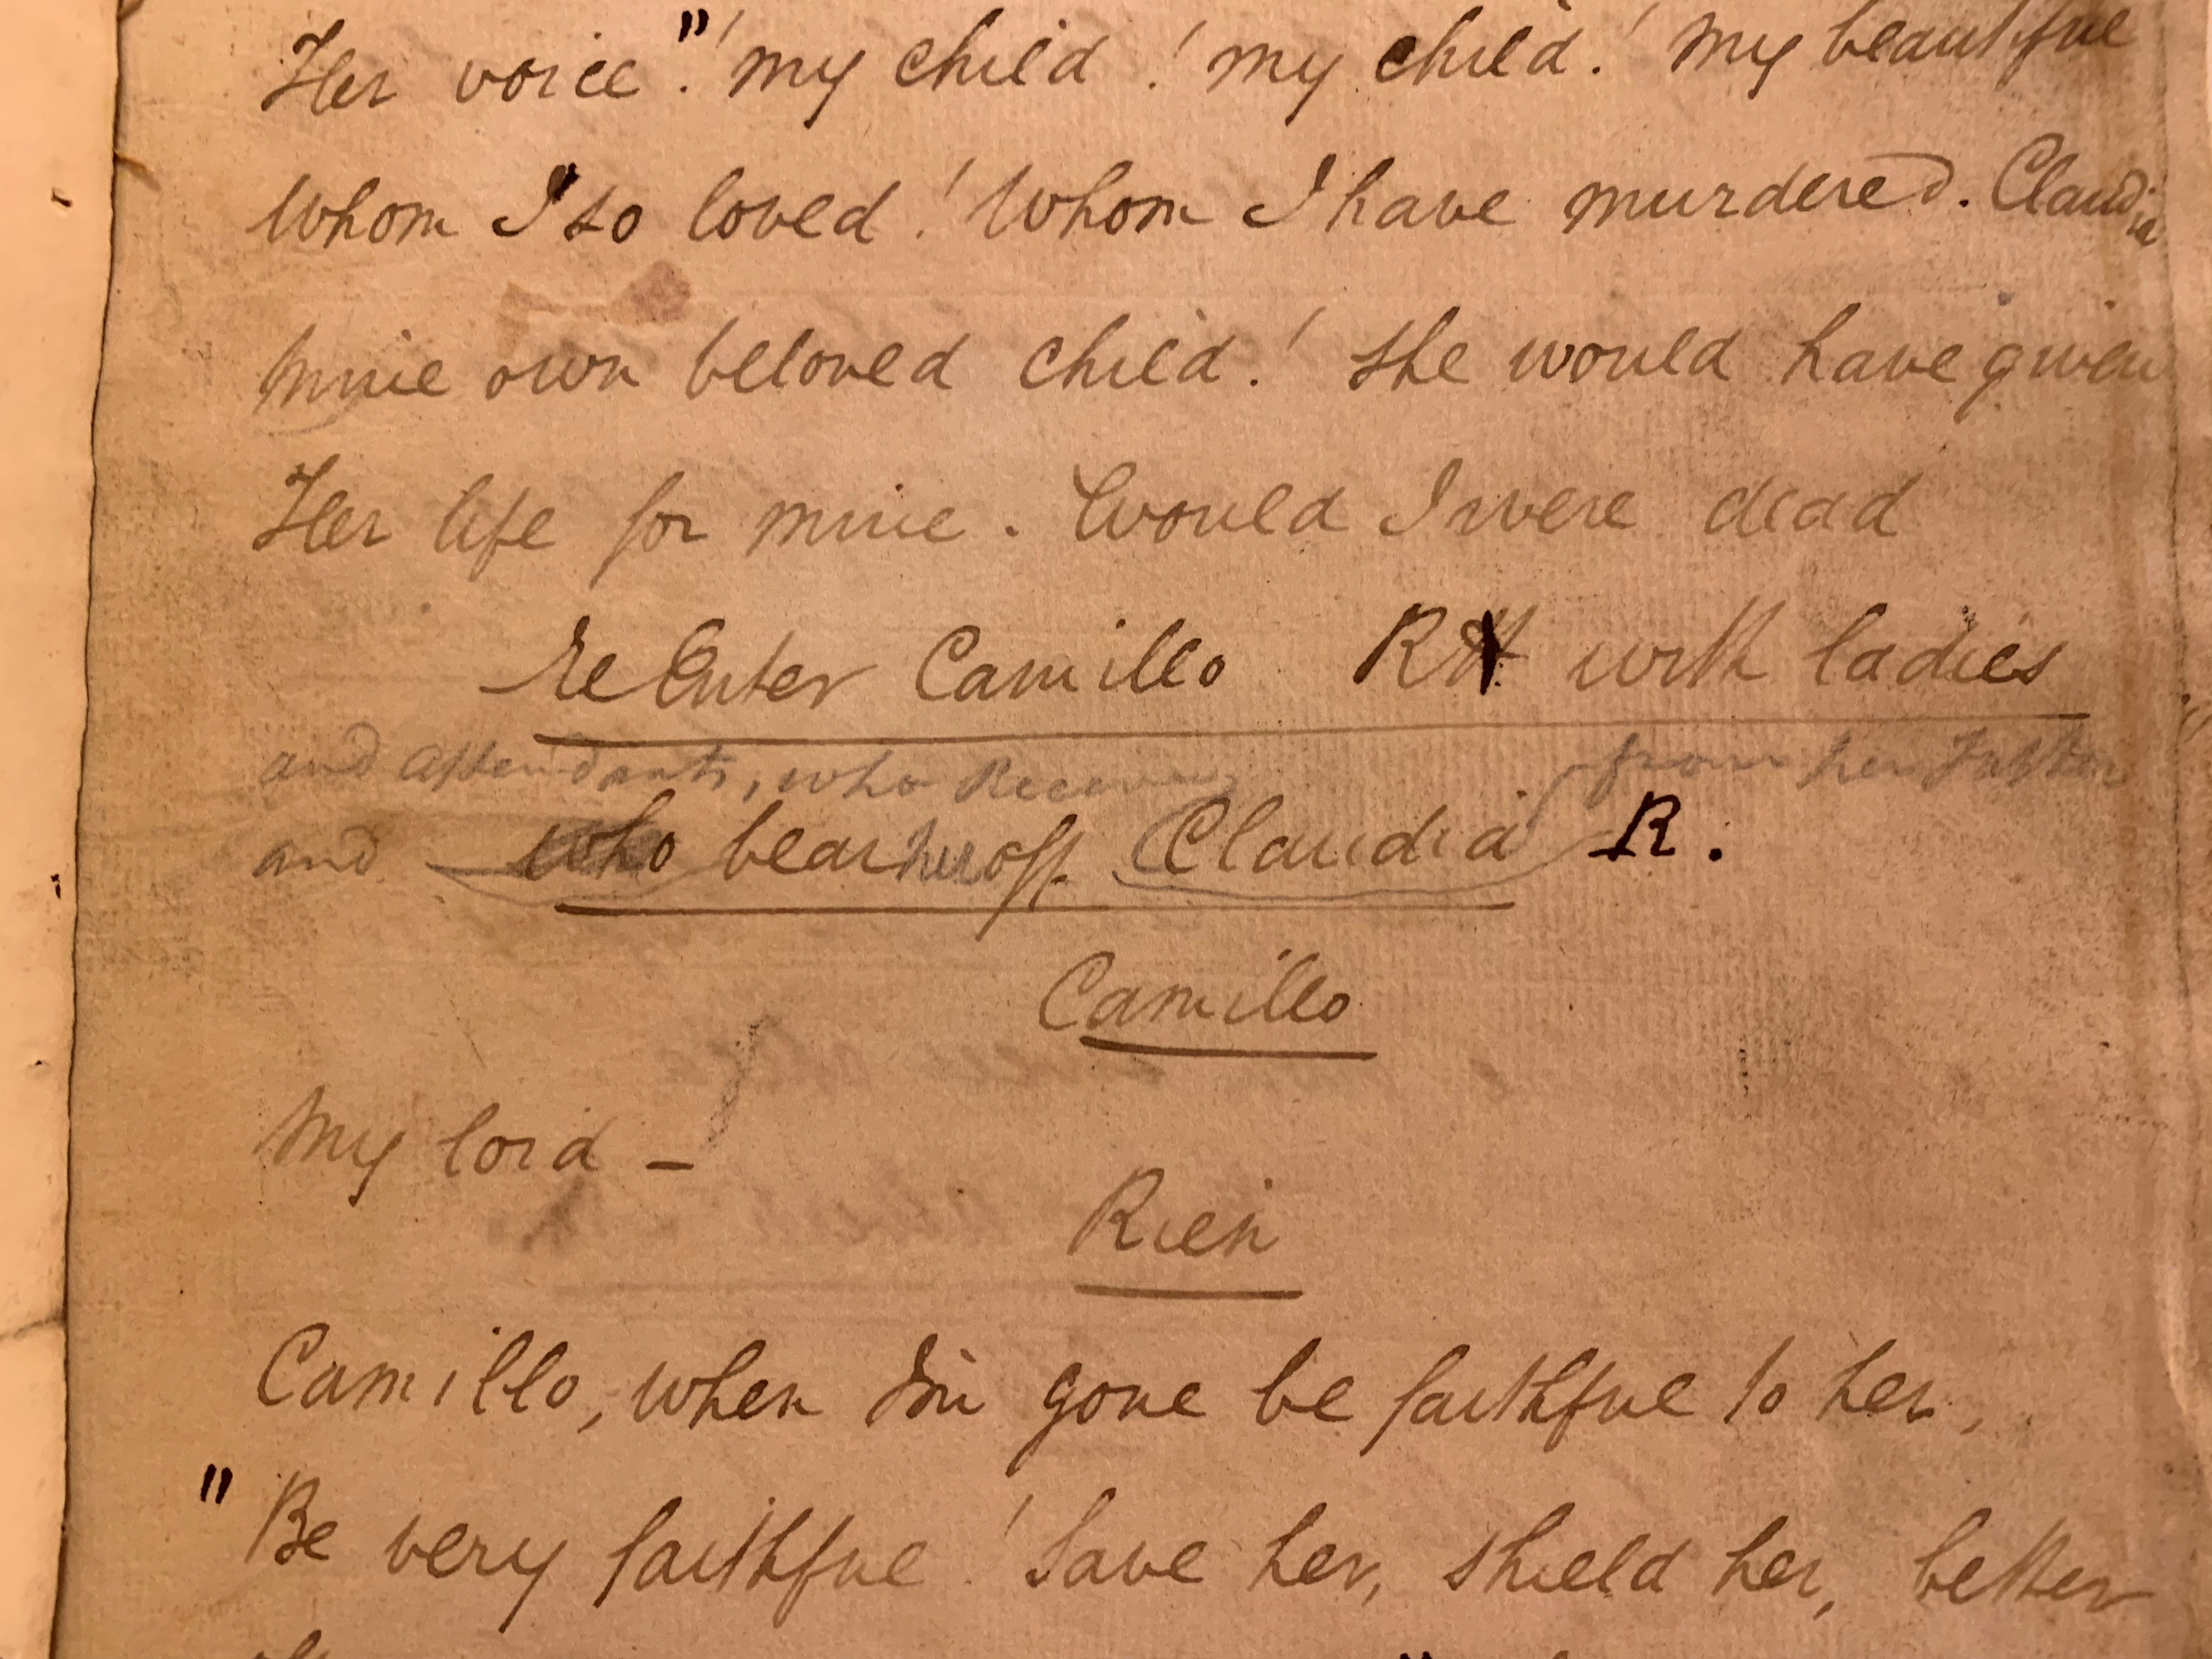 Her voice." ! my child ! my child ! My beautiful
Whom I so loved ! Whom I have murdered. Claudia
Mine own beloved child ! She would have given
Her life for mine. Would I were dead
ReEnter Camillo R with ladies
and attendants, who Receive from her Father
and who bear her off Claudia R.
Camillo
My lord –
Rien
Camillo, when I'm gone be faithful to her,
" Be very faithful ! Save her, shield her, better